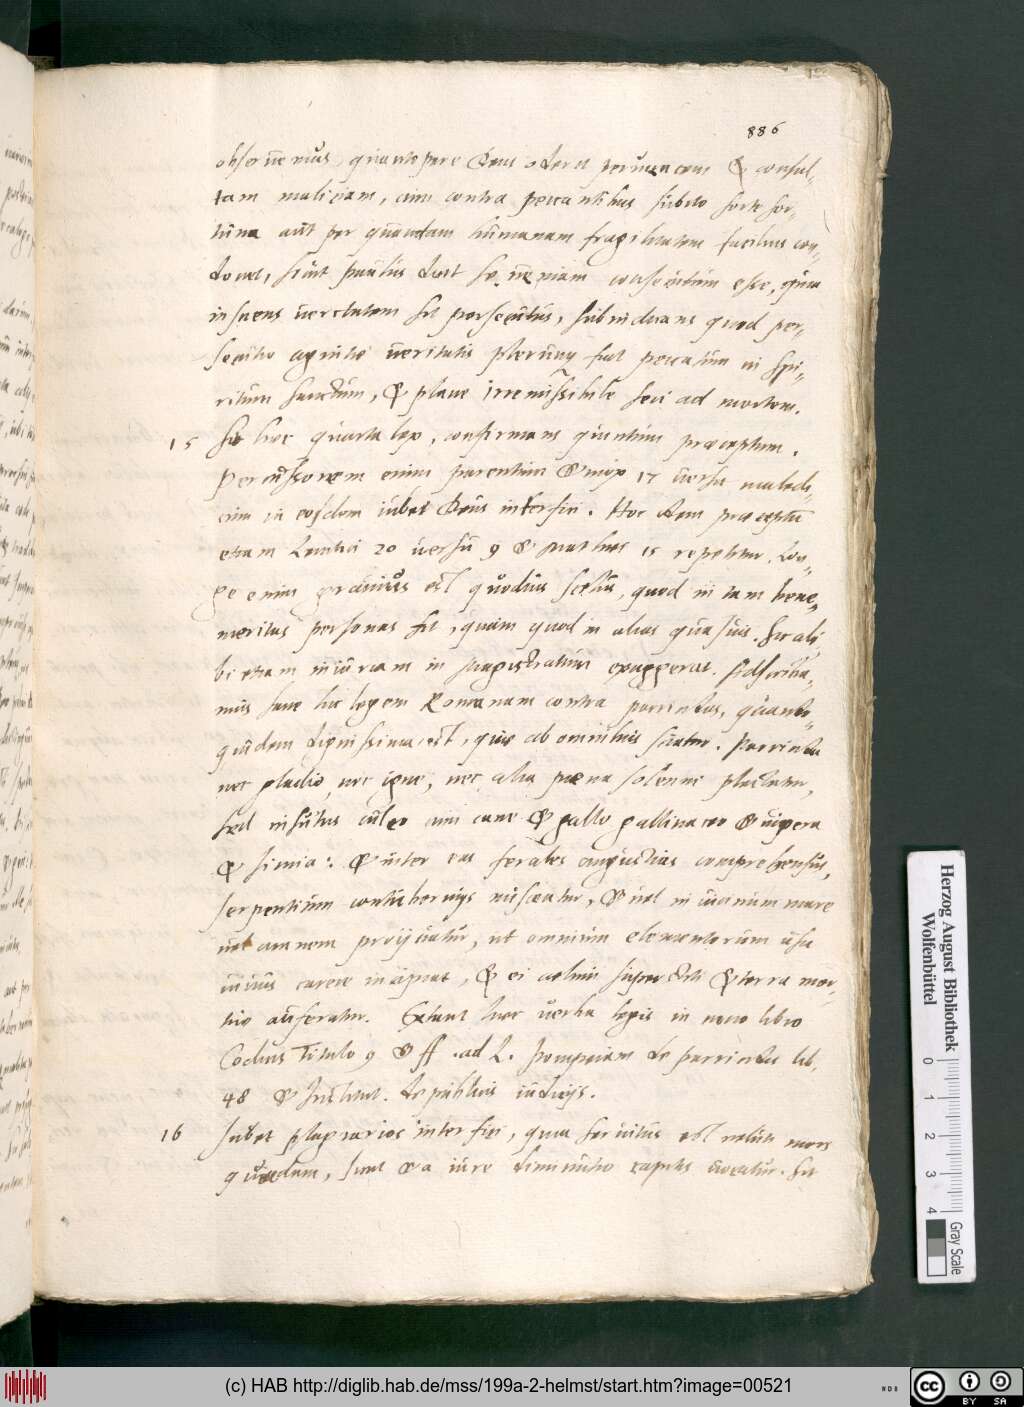 886
obseruemus, quantopere Deus oderit peruicacem & consul-
tam maliciam, cum contra peccantibus subito forte for-
tuna aut per quandam humanam fragilitatem facilius con-
donet, sicut Paulus dicit se ueniam consecutum esse, quia
insciens ueritatem sit persecutus, subindicans quod per-
secutio agnitae ueritatis plerunq fiat peccatum in spi-
ritum sanctum, & plane irremissibile seu ad mortem.
15 Sit haec quarta lex, confirmans quintum praeceptum.
Percussorem enim parentum & mox 17 uersu maledi-
cum in eosdem iubet Deus interfici. Hoc Item praeceptu
etiam Leuitici 20 uersu 9 & Matthaei 15 repetitur. Lon-
ge enim grauius est quoduis scelus, quod in tam bene-
meritas personas fit, quam quod in alias quasuis. Sic ali-
bi etiam iniuriam in magistratum exaggerat. Adscriba-
mus sane hic legem Romanam contra parricidas, quando-
quidem dignissima est, quae ab omnibus sciatur. Parricida
nec gladio, nec igne, nec alia paena solenni plectatur,
sed insutus culeo cum cane & gallo gallinaceo & uipera
& simia: & inter eas ferales angustias comprehensus,
serpentium contubernijs misceatur, & uel in uicinum mare
uel amnem proijciatur, ut omnium elementorum usu
uiuus carere incipiat, & ei coelum superstiti & terra mor-
tuo auferatur. Extant haec uerba legis in nono libro
Codicis Titulo 9 & ff. ad L. Pompeiam de parricidis lib.
48 & Institut. de publicis iudicijs.
16 Iubet plagiarios interfici, quia seruitus est uelut mors
quaedam, sicut & a iure diminutio capitis uocatur. Sit
Herzog August Bibliothek
Wolfenbüttel
0 1 2 3 4
Gray Scale
(c) HAB http://diglib.hab.de/mss/199a-2-helmst/start.htm?image=00521
cc BY SA